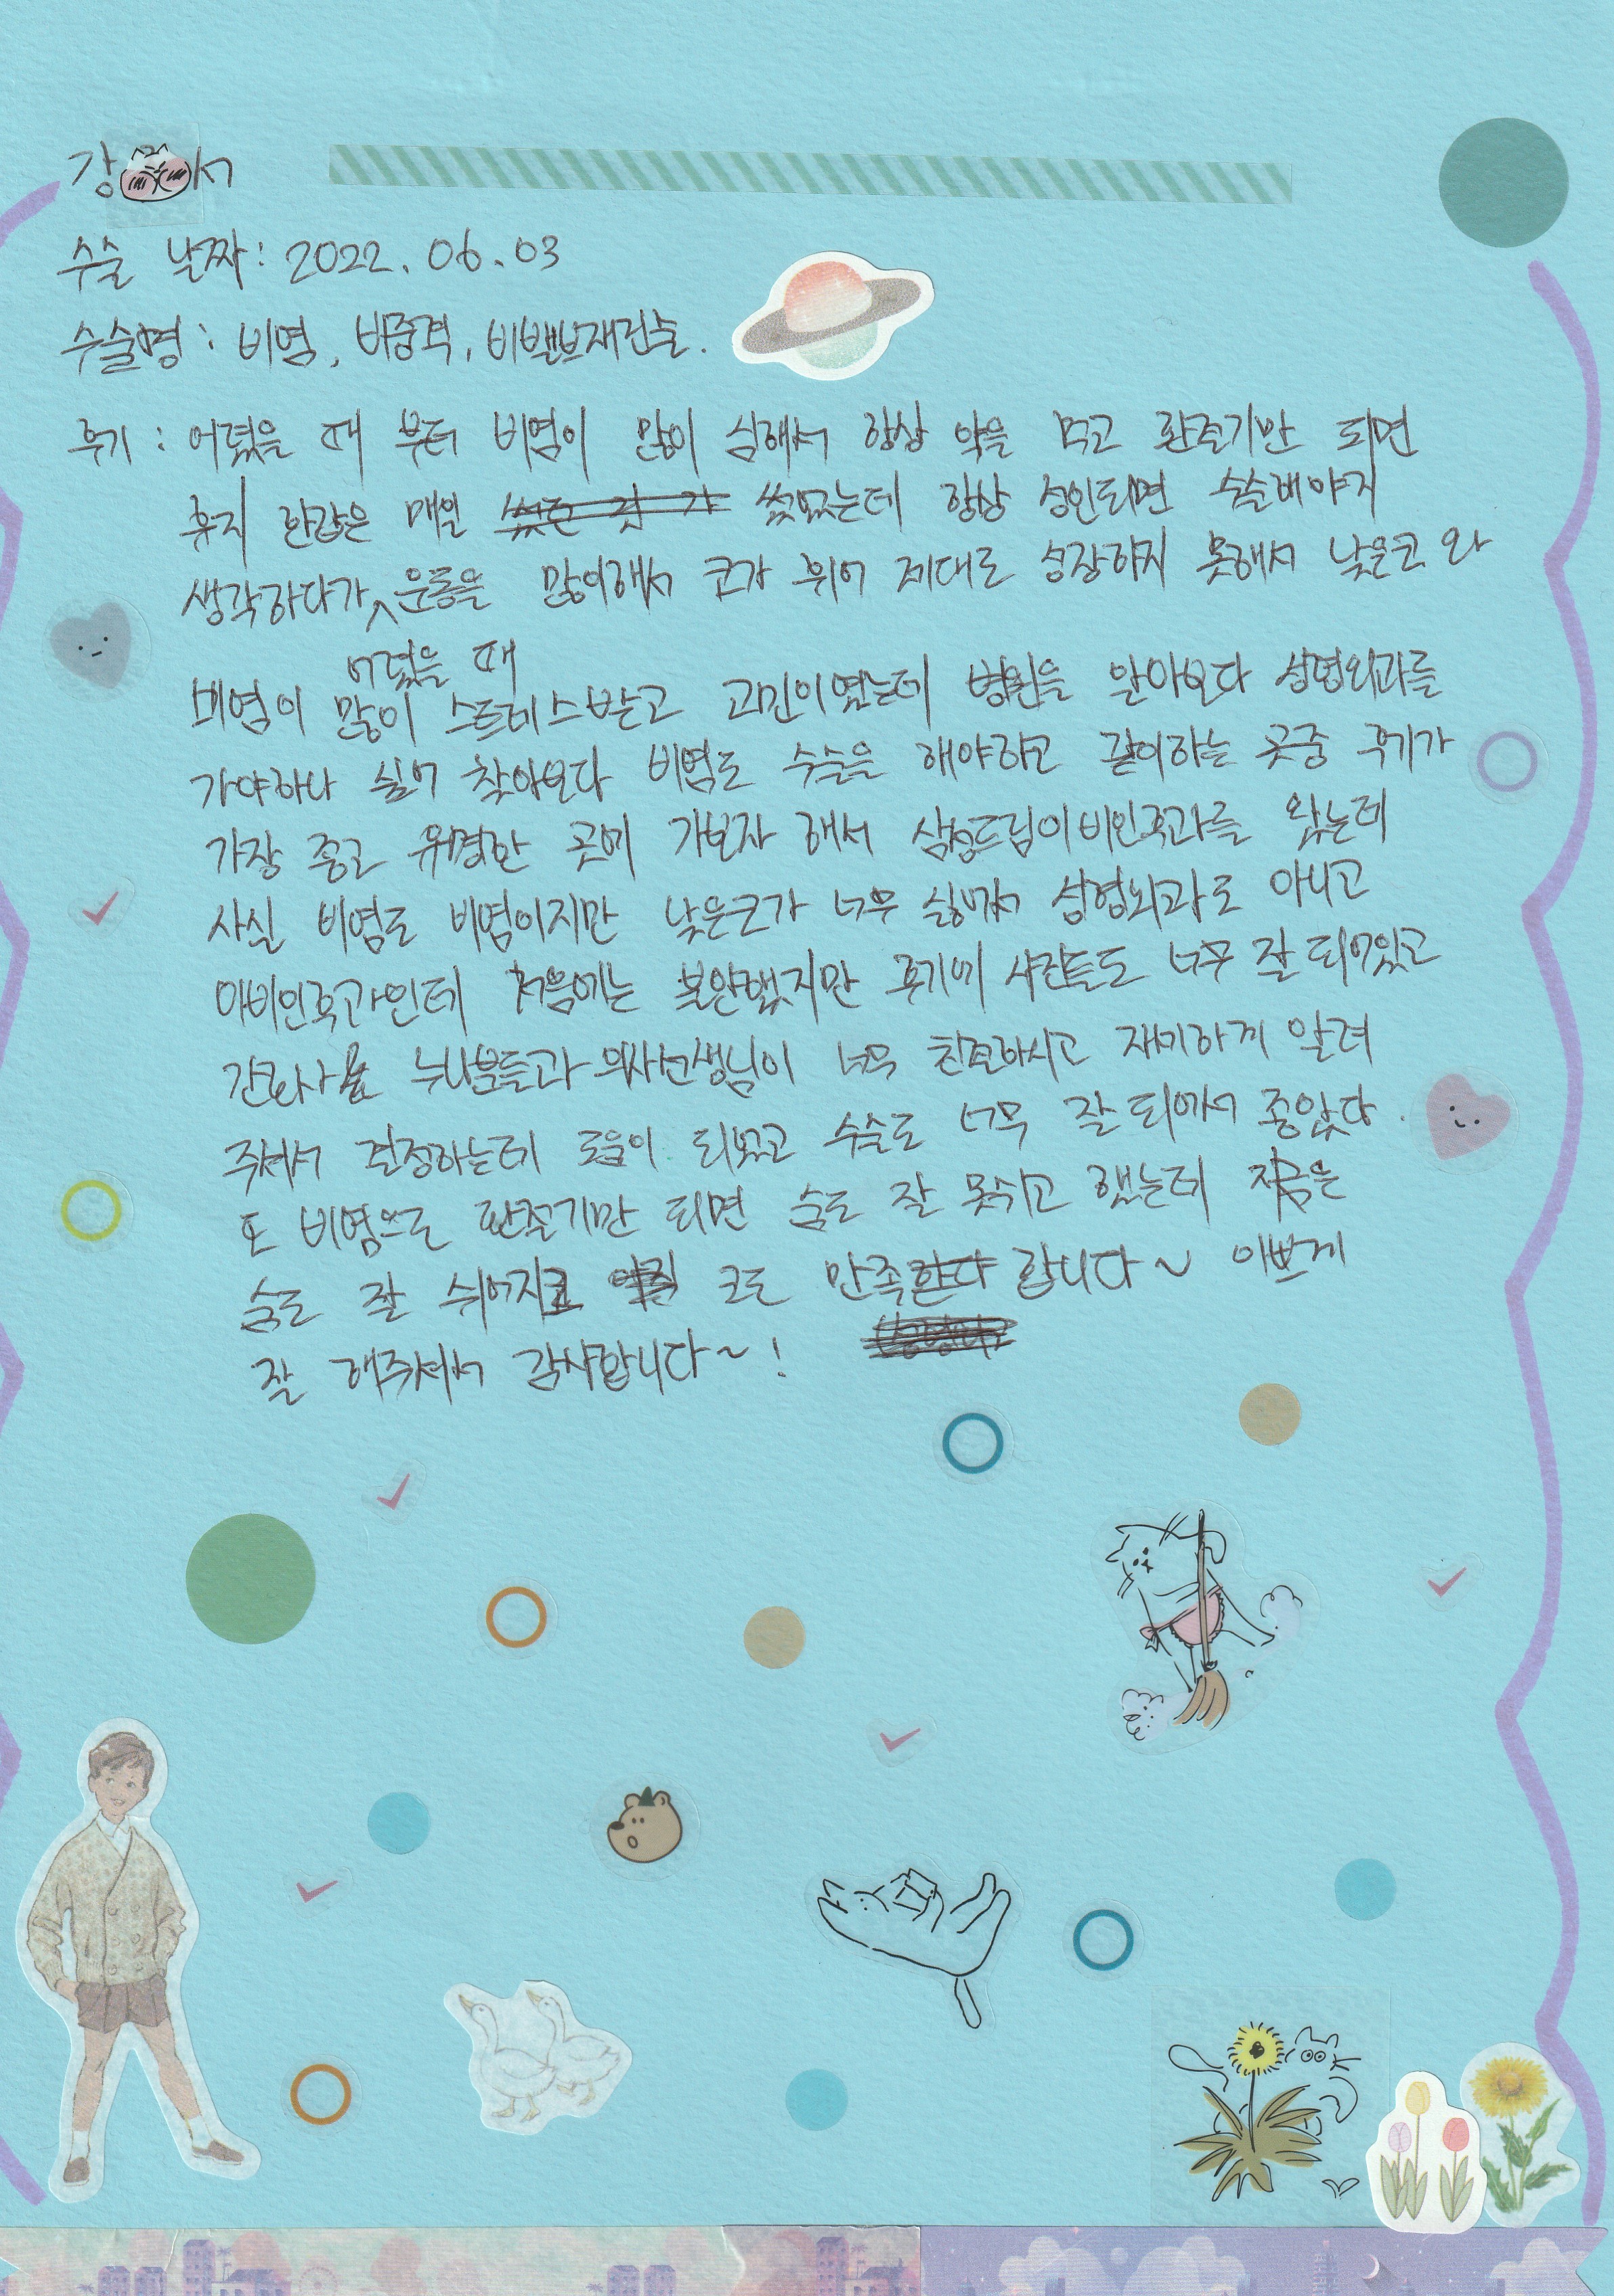 강 서
수술 날짜: 2022. 06. 03
수술명: 비염, 비중격, 비밸브재건술.
후기 : 어렸을 때 부터 비염이 많이 심해서 항상 약을 먹고 환절기만 되면
휴지 한갑은 매일 썼었는데 항상 성인되면 수술해야지
생각하다가 운동을 많이해서 코가 휘어 제대로 성장하지 못해서 낮은코 와
어렸을 때
비염이 많이 스트레스받고 고민이였는데 병원을 알아보다 성형외과를
가야하나 싶어 찾아보다 비염도 수술을 해야하고 같이하는 곳중 후기가
가장 좋고 유명한 곳에 가보자 해서 삼성드림이비인후과를 왔는데
사실 비염도 비염이지만 낮은코가 너무 싫어서 성형외과도 아니고
이비인후과인데 처음에는 불안했지만 후기에 사진들도 너무 잘 되어있고
간호사 누나분들과 의사선생님이 너무 친절하시고 자세하게 알려
주셔서 결정하는데 도움이 되었고 수술도 너무 잘 되어서 좋았다.
또 비염으로 환절기만 되면 숨도 잘 못쉬고 했는데 지금은
숨도 잘 쉬어지고 코도 만족합니다~ 이쁘게
잘 해주셔서 감사합니다~!